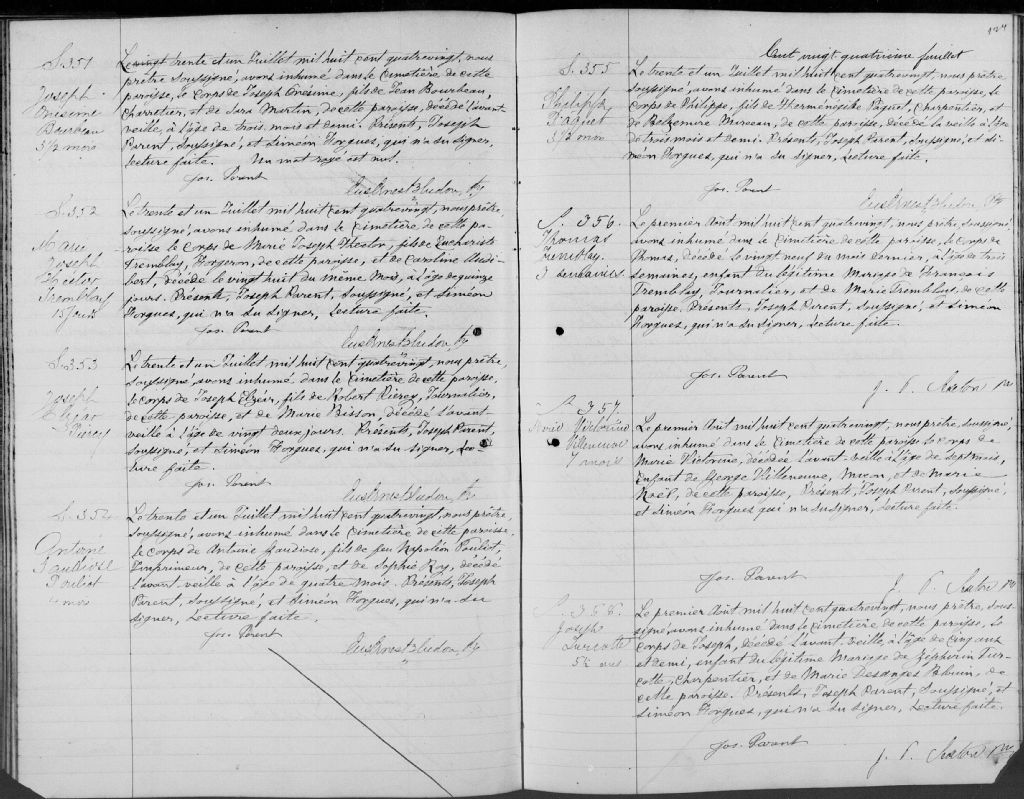 S. 351
Joseph
Onésime
Bourbeau
3 1/2 mois
Le vingt trente et un Juillet mil huit cent quatrevingt, nous
prêtre soussigné, avons inhumé dans le cimetière de cette
paroisse, le corps de Joseph Onésime, fils de Jean Bourbeau,
Charretier, et de Sara Martin, de cette paroisse, décédé l'avant-
veille, à l'âge de trois mois et demi. Présents, Joseph
Parent, soussigné, et Siméon Horgues, qui n'a su signer,
lecture faite. Un mot rayé est nul.
Jos. Parent
S. 352
Marie
Joseph
Hestor
Tremblay
15 jours
Le trente et un Juillet mil huit cent quatrevingt, nous prêtre,
soussigné, avons inhumé dans le cimetière de cette pa-
roisse le corps de Marie Joseph Hestor, fils de Eucharist
Tremblay, Forgeron, de cette paroisse, et de Caroline
décédé le vingt huit du même mois, à l'âge de quinze
jours. Présents, Joseph Parent, soussigné, et Siméon
Horgues, qui n'a su signer, lecture faite.
Jos. Parent
S. 353
Joseph
Elzéar
Piercy
Le trente et un Juillet mil huit cent quatrevingt, nous prêtre,
soussigné, avons inhumé, dans le cimetière de cette paroisse,
le corps de Joseph Elzéar, fils de Robert Piercy, Journalier,
de cette paroisse, et de Marie Bisson, décédé l'avant-
veille à l'âge de vingt deux jours. Présents, Joseph Parent,
soussigné, et Siméon Horgues, qui n'a su signer, lec-
ture faite.
Jos. Parent
S. 354
Antoine
Gaudiose
Pouliot
4 mois
Le trente et un Juillet mil huit cent quatrevingt, nous prêtre,
soussigné, avons inhumé dans le cimetière de cette paroisse,
le corps de Antoine Gaudiose, fils de feu Napoléon Pouliot,
Imprimeur, de cette paroisse, et de Sophie Roy, décédé
l'avant-veille à l'âge de quatre mois. Présents, Joseph
Parent, soussigné, et Siméon Horgues, qui n'a su
signer, lecture faite.
Jos. Parent
124
Cent vingt quatrième feuillet
S. 355
Philippe
Paquet
3 1/2 mois
Le trente et un Juillet mil huit cent quatrevingt, nous prêtre,
soussigné, avons inhumé dans le cimetière de cette paroisse, le
corps de Philippe, fils de Herménégilde Paquet, Charpentier, et
de Mineau, de cette paroisse, décédé la veille à l'âge
de trois mois et demi. Présents, Joseph Parent, soussigné, et Si-
méon Horgues, qui n'a su signer, lecture faite.
Jos. Parent
S. 356.
Thomas
Tremblay.
3 semaines
Le premier Août mil huit cent quatrevingt, nous prêtre, soussigné,
avons inhumé dans le cimetière de cette paroisse, le corps de
Thomas, décédé le vingt neuf du mois dernier, à l'âge de trois
semaines, enfant du légitime Mariage de François
Tremblay, Journalier, et de Marie Tremblay, de cette
paroisse. Présents, Joseph Parent, soussigné, et Siméon
Horgues, qui n'a su signer, lecture faite.
Jos. Parent
S. 357.
Victorine
Villeneuve
7 mois
Le premier Août mil huit cent quatrevingt, nous prêtre, soussigné,
avons inhumé dans le cimetière de cette paroisse le corps de
Marie Victorine, décédée l'avant-veille à l'âge de sept mois,
enfant de George Villeneuve, et de Marie
Noël, de cette paroisse, Présents, Joseph Parent, soussigné,
et Siméon Horgues qui n'a su signer, lecture faite.
Jos. Parent
S. 358.
Joseph
Turcotte
5 1/2 ans
Le premier Août mil huit cent quatrevingt, nous prêtre, sous-
signé, avons inhumé dans le cimetière de cette paroisse, le
corps de Joseph, décédé l'avant-veille, à l'âge de cinq ans
et demi, enfant du légitime Mariage de Zéphirin Tur-
cotte, Charpentier, et de Marie Desanges, de
cette paroisse. Présents, Joseph Parent, soussigné, et
Siméon Horgues, qui n'a su signer, lecture faite.
Jos. Parent